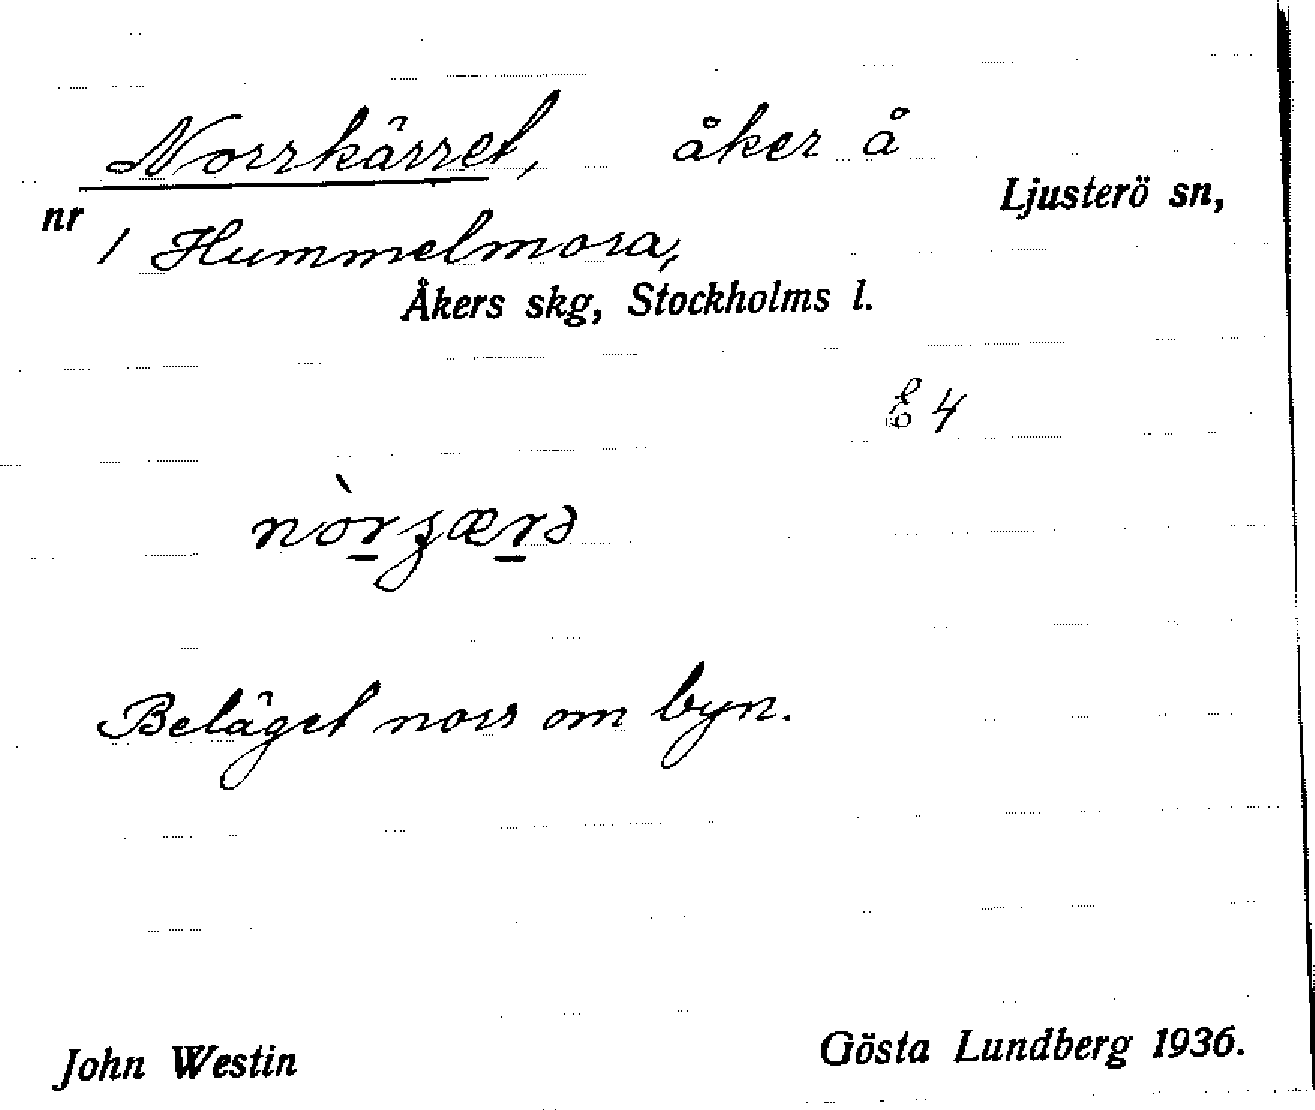 Norrkärret, åker å
Ljusterö sn,
nr 1 Hummelmora,
Åkers skg, Stockholms l.
E 4
nòr̲ʒær̲ə
Beläget norr om byn.
John Westin
Gösta Lundberg 1936.